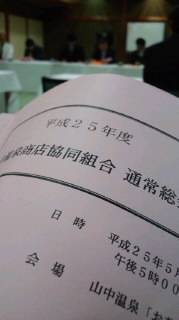 平成２５年度
温泉商店協同組合 通常総
日 時 平成２５年５
午後５時００
会 場 山中温泉「お